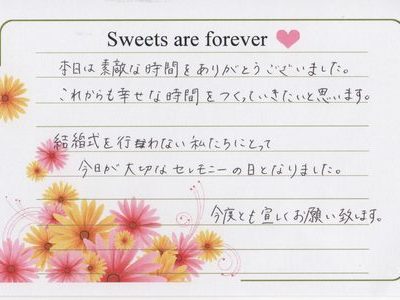 Sweets are forever
本日は素敵な時間をありがとうございました。
これからも幸せな時間をつくっていきたいと思います。
結婚式を行わない私たちにとって
今日が大切なセレモニーの日となりました。
今度とも宜しくお願い致します。